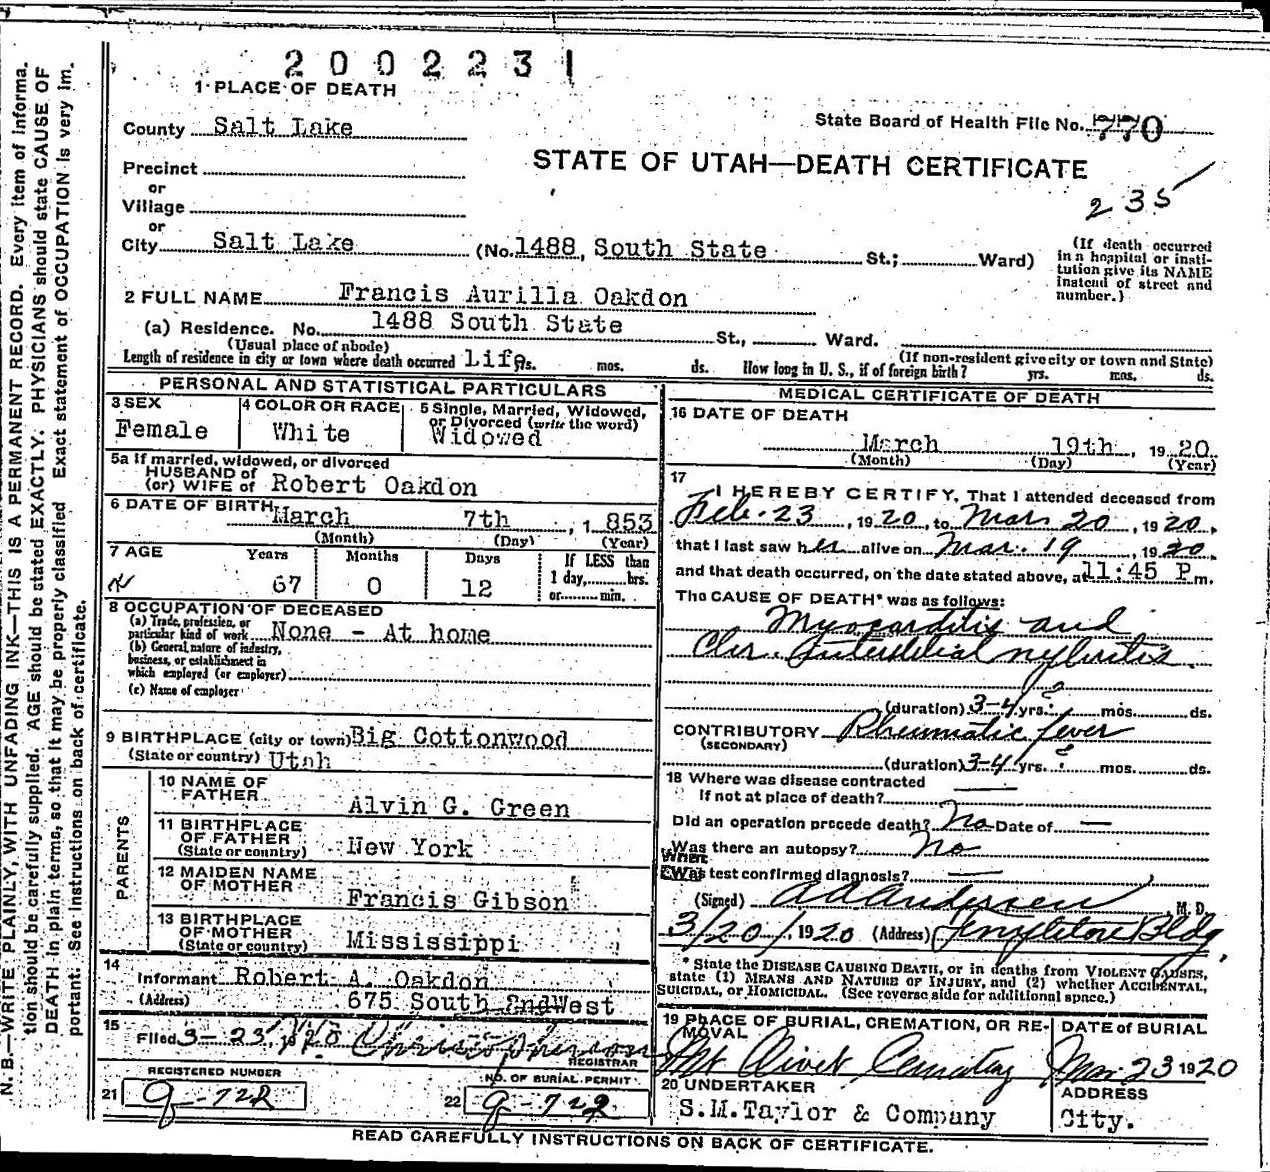 2002231
1 PLACE OF DEATH
County Salt Lake
State Board of Health File No. 770
Precinct
or
Village
or
STATE OF UTAH—DEATH CERTIFICATE
235
City Salt Lake (No. 1488, South State St.; Ward)
(If death occurred in a hospital or insti-
tution give its NAME
instead of street and
number.)
2 FULL NAME Francis Aurilla Oakdon
(a) Residence. No. 1488 South State St., Ward.
(Usual place of abode)
(If non-resident give city or town and State)
Length of residence in city or town where death occurred Life yrs. mos. ds. How long in U. S., if of foreign birth? yrs. mos. ds.
PERSONAL AND STATISTICAL PARTICULARS
3 SEX
Female
4 COLOR OR RACE
White
5 Single, Married, Widowed,
or Divorced (write the word)
Widowed
5a If married, widowed, or divorced
HUSBAND of
(or) WIFE of Robert Oakdon
6 DATE OF BIRTH March 7th, 1853
(Month) (Day) (Year)
7 AGE Years Months Days If LESS than
1 day, hrs.
or min.
67 0 12
8 OCCUPATION OF DECEASED
(a) Trade, profession, or
particular kind of work None - At home
(b) General nature of industry,
business, or establishment in
which employed (or employer)
(c) Name of employer
9 BIRTHPLACE (city or town) Big Cottonwood
(State or country) Utah
PARENTS
10 NAME OF
FATHER Alvin G. Green
11 BIRTHPLACE
OF FATHER
(State or country) New York
12 MAIDEN NAME
OF MOTHER Francis Gibson
13 BIRTHPLACE
OF MOTHER
(State or country) Mississippi
14
Informant Robert A. Oakdon
(Address) 675 South 2ndWest
15
Filed 3-23, 1920
REGISTRAR
REGISTERED NUMBER
21 9-722
NO. OF BURIAL PERMIT
22 9-722
MEDICAL CERTIFICATE OF DEATH
16 DATE OF DEATH
March 19th, 1920
(Month) (Day) (Year)
17
I HEREBY CERTIFY, That I attended deceased from
Feb. 23, 1920, to Mar 20, 1920,
that I last saw her alive on Mar. 19, 1920
and that death occurred, on the date stated above, at 11:45 P m.
The CAUSE OF DEATH* was as follows:
Myocarditis and
Chr. Interstitial nephritis
(duration) 3-4 yrs. ? mos. ds.
CONTRIBUTORY Rheumatic fever
(SECONDARY)
(duration) 3-4 yrs. ? mos. ds.
18 Where was disease contracted
If not at place of death?
Did an operation precede death? No Date of —
Was there an autopsy? No
What test confirmed diagnosis? —
(Signed) A A Anderson M. D.
3/20/, 1920 (Address) Templeton Bldg
* State the DISEASE CAUSING DEATH, or in deaths from VIOLENT CAUSES,
state (1) MEANS AND NATURE OF INJURY, and (2) whether ACCIDENTAL,
SUICIDAL, or HOMICIDAL. (See reverse side for additional space.)
19 PLACE OF BURIAL, CREMATION, OR RE-
MOVAL
Mt Olivet Cemetery
DATE of BURIAL
Mar 23 1920
20 UNDERTAKER
S.M.Taylor & Company
ADDRESS
City.
READ CAREFULLY INSTRUCTIONS ON BACK OF CERTIFICATE.
N. B.—WRITE PLAINLY, WITH UNFADING INK—THIS IS A PERMANENT RECORD. Every item of informa-
tion should be carefully supplied. AGE should be stated EXACTLY. PHYSICIANS should state CAUSE OF
DEATH in plain terms, so that it may be properly classified. Exact statement of OCCUPATION is very im-
portant. See instructions on back of certificate.